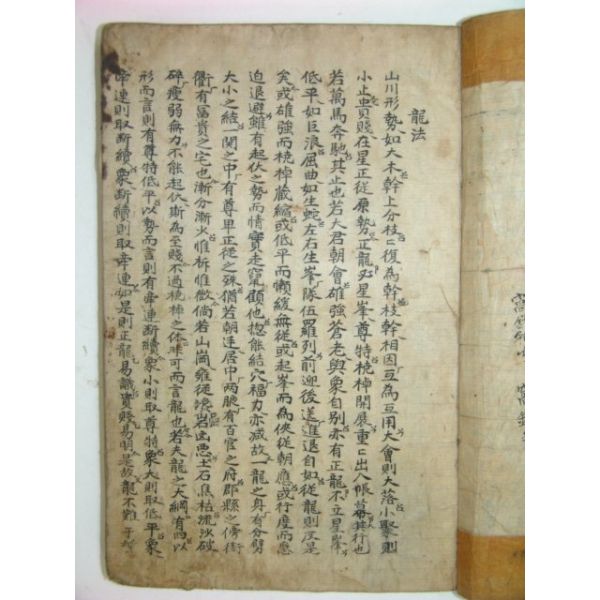 龍法
山川形勢如大木幹上分枝〻復為幹枝幹相因互為互用大會則大落小聚則
小止貴賤在星正從原勢正龍必星峯尊特梡棹開展重〻出入帳幕其行也
若萬馬奔馳其止也若大君朝會雄強蒼老與衆自別亦有正龍不立星峯
低平如巨浪屈曲如生蛇左右生峯隊伍羅列前迎後送進退自如從龍則反是
矣或雄強而梡棹藏縮或低平而懶緩無從或起峯而為俠從朝應或行度而
迫退避雖有起伏之勢而情實走竄顧他揔能結穴福力亦减故一龍之身有分劈
大小之結一関之中有尊卑正從之殊猶若朝廷居中両腋有百官之府郡縣之傍
衢有冨貴之宅也漸分漸火惟柝惟散倘若山崗雍徒巉岩凶悪土石焦枯流沙破
碎瘦弱無力不能起伏斯為至賤不過梡棹之体非可而言龍也若夫龍之大綱有四以
形而言則有尊特低平以勢而言則有牵連断續衆小則取尊特衆大則取低平衆
牵連則取断續衆断續則取牵連如是則正龍易識貴賤易明是故龍不難